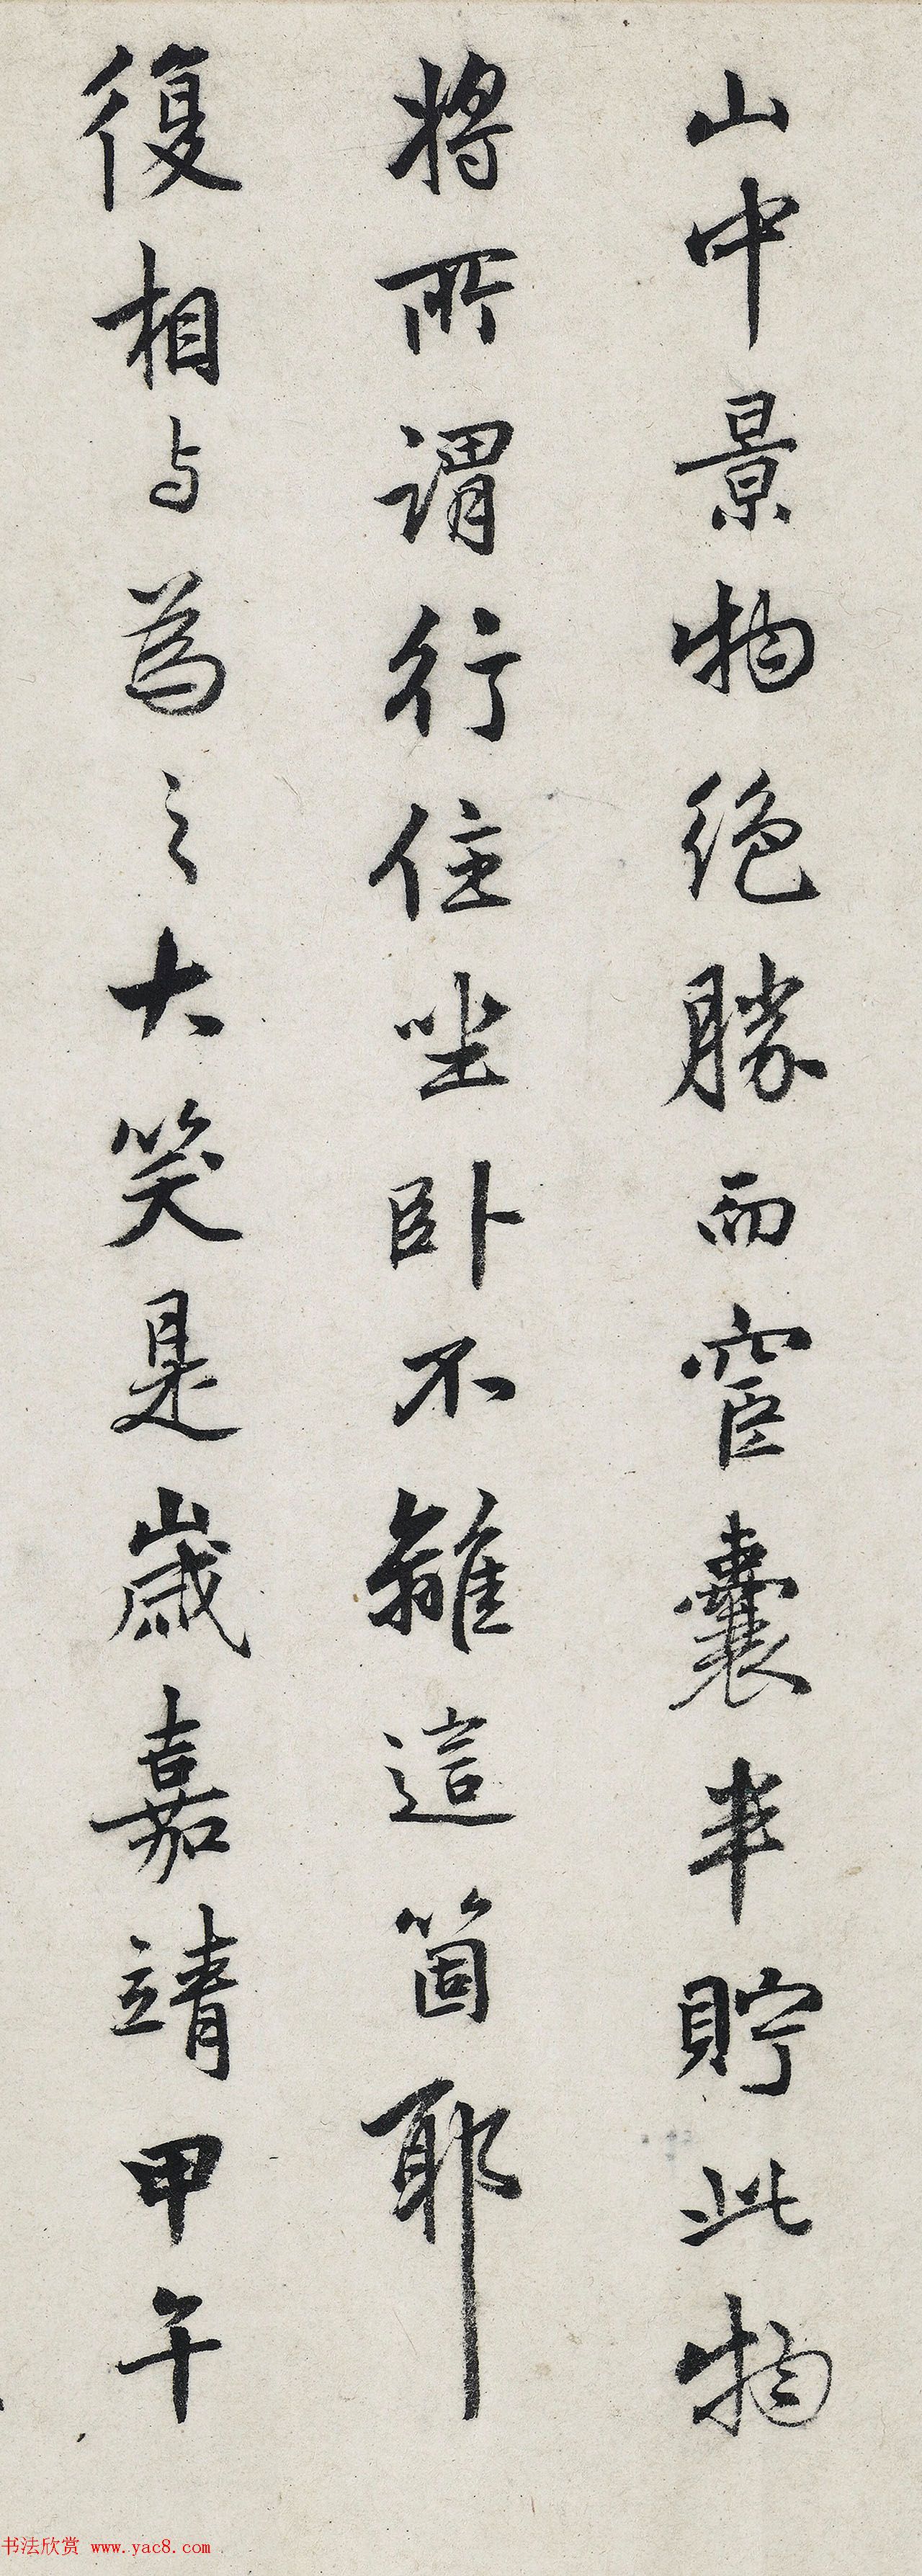 山中景物絶勝而宦囊半貯此物
將所謂行住坐卧不離這箇耶
復相与為之大笑是歲嘉靖甲午
书法欣赏 www.yac8.com